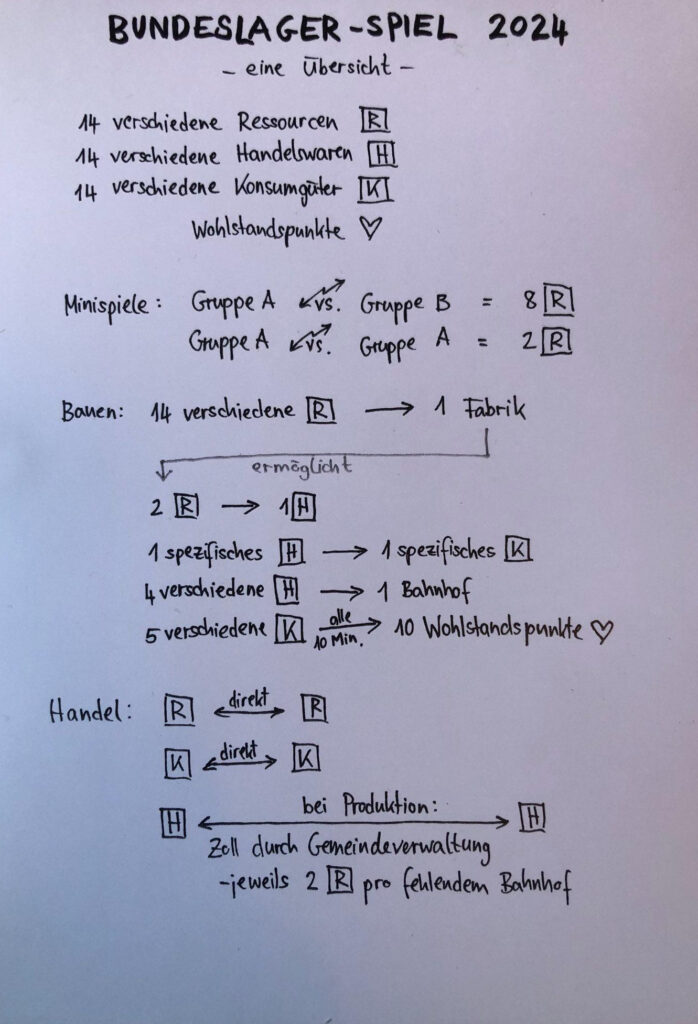 BUNDESLAGER-SPIEL 2024
- eine Übersicht -
14 verschiedene Ressourcen R
14 verschiedene Handelswaren H
14 verschiedene Konsumgüter K
Wohlstandspunkte ♡
Minispiele: Gruppe A vs. Gruppe B = 8 R
Gruppe A vs. Gruppe A = 2 R
Bauen: 14 verschiedene R → 1 Fabrik
ermöglicht
2 R → 1 H
1 spezifisches H → 1 spezifisches K
4 verschiedene H → 1 Bahnhof
5 verschiedene K alle 10 Min. → 10 Wohlstandspunkte ♡
Handel: R ↔ direkt R
K ↔ direkt K
bei Produktion:
H ↔ H
Zoll durch Gemeindeverwaltung
-jeweils 2 R pro fehlendem Bahnhof